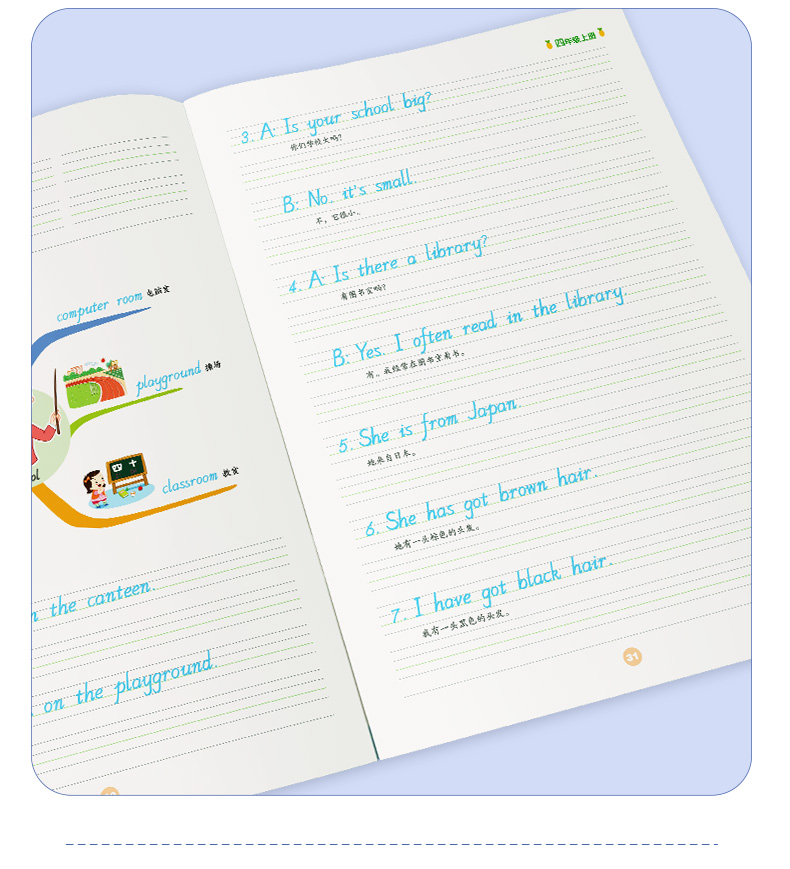 computer room 电脑室
playground 操场
classroom 教室
the canteen.
on the playground.
四年级上册
3. A: Is your school big?
你们学校大吗?
B: No, it's small.
不，它很小。
4. A: Is there a library?
有图书室吗?
B: Yes. I often read in the library.
有。我经常在图书室看书。
5. She is from Japan.
她来自日本。
6. She has got brown hair.
她有一头棕色的头发。
7. I have got black hair.
我有一头黑色的头发。
31